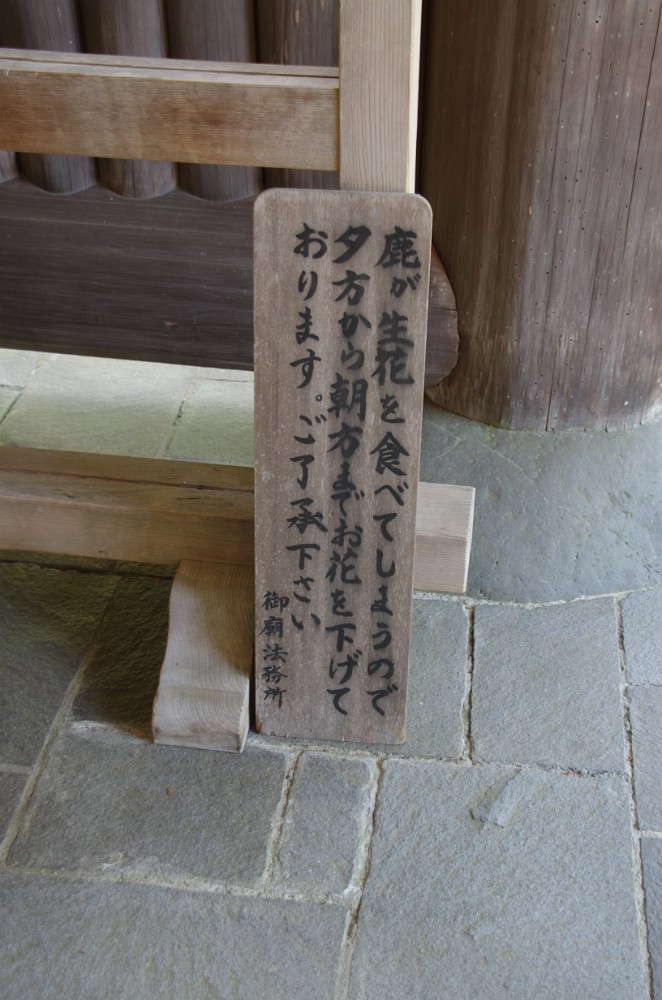 鹿が生花を食べてしまうので
夕方から朝方までお花を下げて
おります。ご了承下さい
御廟法務所